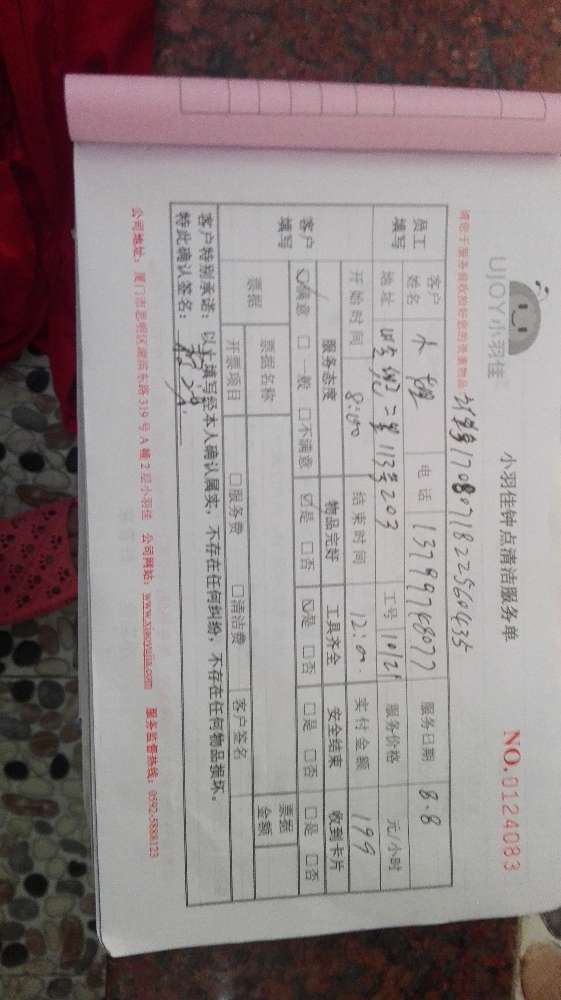 UJOY小羽佳
小羽佳钟点清洁服务单
NO.0124083
1708071822560435
员工填写
客户姓名 小 电话 13799748077 服务日期 8.8
地址 二里113号203 工号 10121 服务价格 元/小时
开始时间 8:00 结束时间 12:00 实付金额 199
客户填写
服务态度 物品完好 工具齐全 安全结束 收到卡片
☑满意 □一般 □不满意 ☑是 □否 ☑是 □否 □是 □否 □是 □否
票据 票据名称 票据金额
开票项目 □服务费 □清洁费 客户签名
客户特别承诺：以上填写经本人确认属实，不存在任何纠纷，不存在任何物品损坏。
特此确认签名：
公司地址：厦门市思明区湖滨东路319号A幢2层小羽佳 公司网站：www.xiaoyujia.com 服务监督热线：0592-5888123